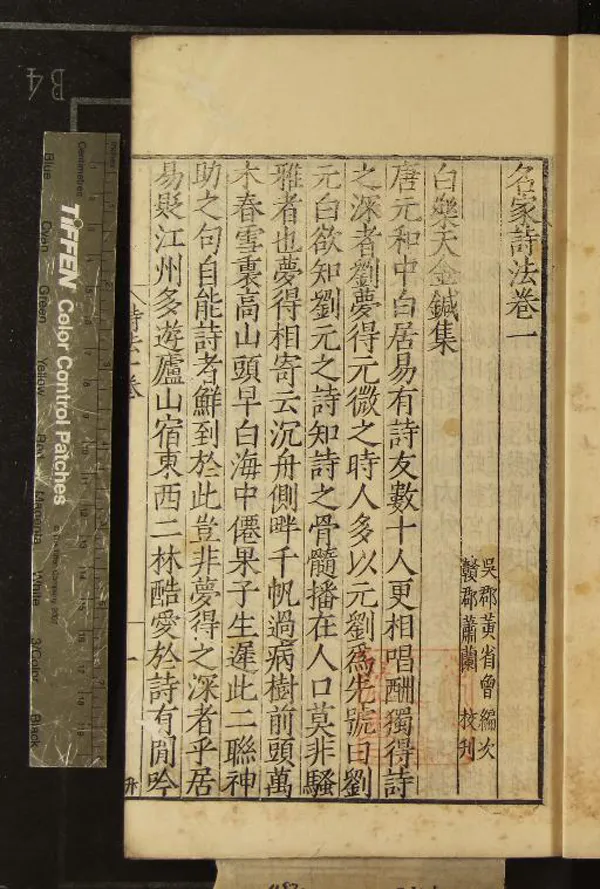 名家詩法卷一
吳郡黃省曾編次
贛郡蕭蘭校刊
白樂天金鍼集
唐元和中白居易有詩友數十人更相唱酬獨得詩
之深者劉夢得元微之時人多以元劉爲先號曰劉
元白欲知劉元之詩知詩之骨髓播在人口莫非騷
雅者也夢得相寄云沉舟側畔千帆過病樹前頭萬
木春雪裏高山頭早白海中僊果子生遲此二聯神
助之句自能詩者鮮到於此豈非夢得之深者乎居
易貶江州多遊廬山宿東西二林酷愛於詩有閒吟
詩法一卷
一
B4
Centimetres
Inches
TIFFEN Color Control Patches
Blue
Cyan
Green
Yellow
Red
Magenta
White
3/Color
Black